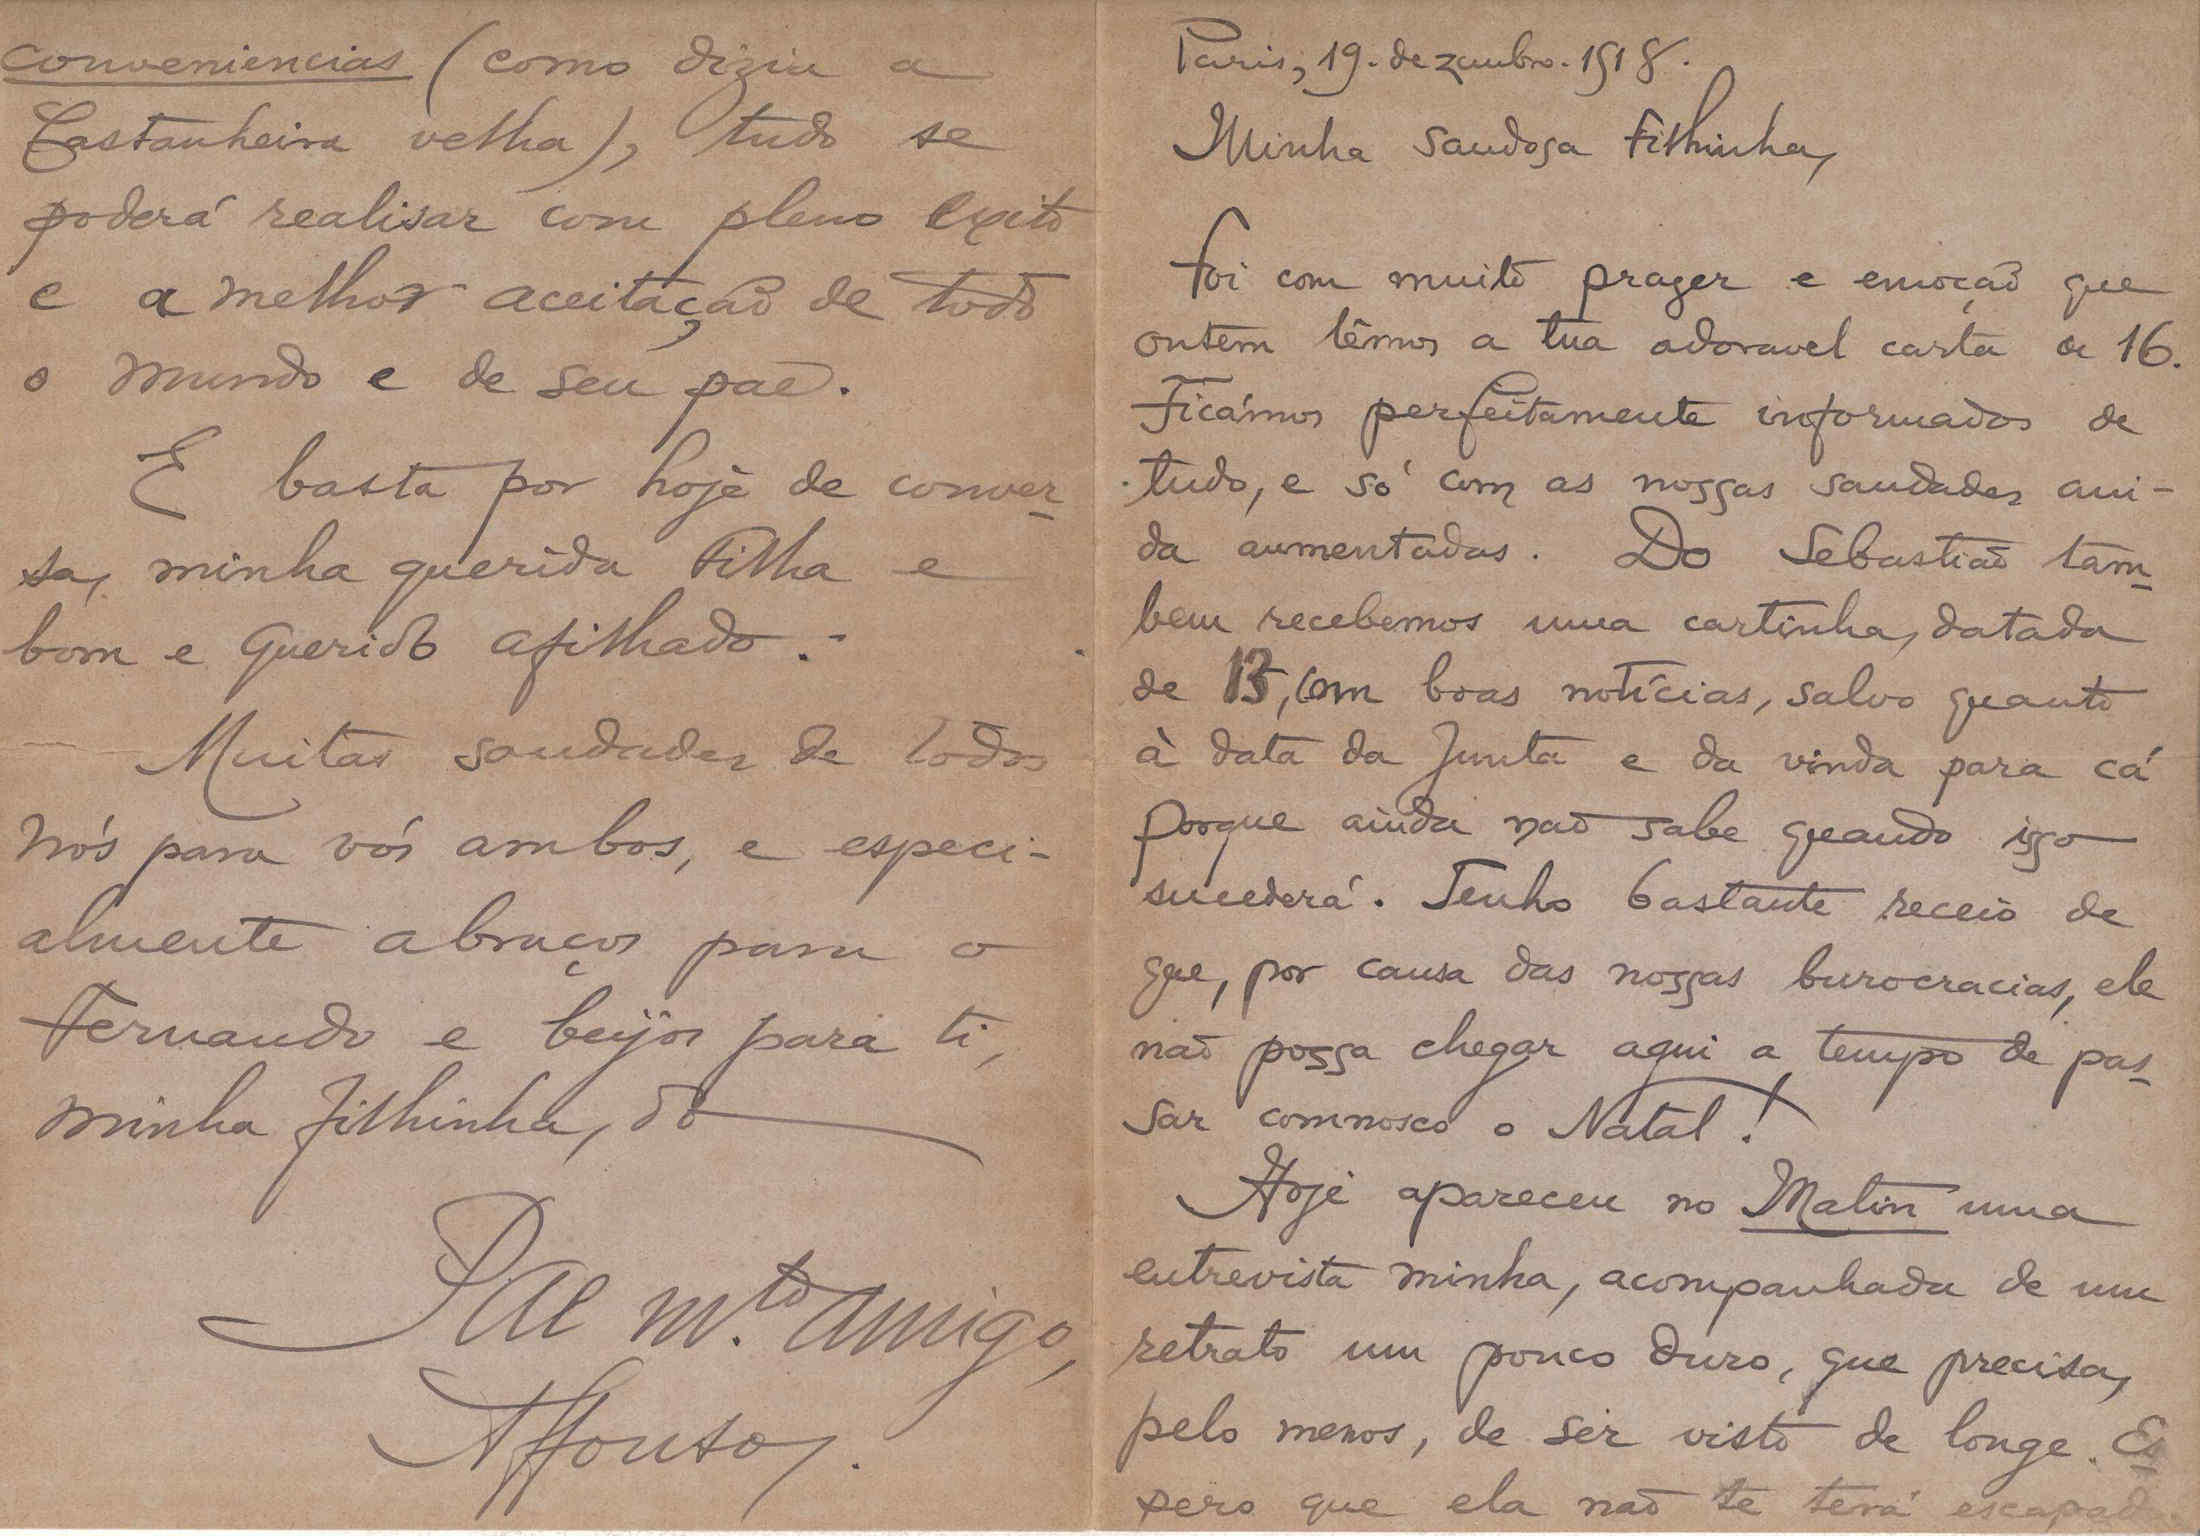 Paris, 19. dezembro. 1918.
Minha saudosa Filhinha,
Foi com muito prazer e emoção que
ontem lêmos a tua adoravel carta de 16.
Ficámos perfeitamente informados de
tudo, e só com as nossas saudades ain-
da aumentadas. Do Sebastião tam-
bem recebemos uma cartinha, datada
de 13, com boas notícias, salvo quanto
à data da Junta e da vinda para cá
porque ainda não sabe quando isso
sucederá. Tenho bastante receio de
que, por causa das nossas burocracias, ele
não possa chegar aqui a tempo de pas-
sar comnosco o Natal!
Hoje apareceu no Matin uma
entrevista minha, acompanhada de um
retrato um pouco duro, que precisa,
pelo menos, de ser visto de longe. Es-
pero que ela não te terá escapado.
conveniencias (como dizia a
Castanheira velha), tudo se
poderá realisar com pleno exito
e a melhor aceitação de todo
o mundo e de seu pae.
E basta por hoje de conver-
sa, minha querida Filha e
bom e querido afilhado.
Muitas saudades de todos
nós para vós ambos, e especi-
almente abraços para o
Fernando e beijos para ti,
minha filhinha, do
Pae m.to amigo,
Affonso.